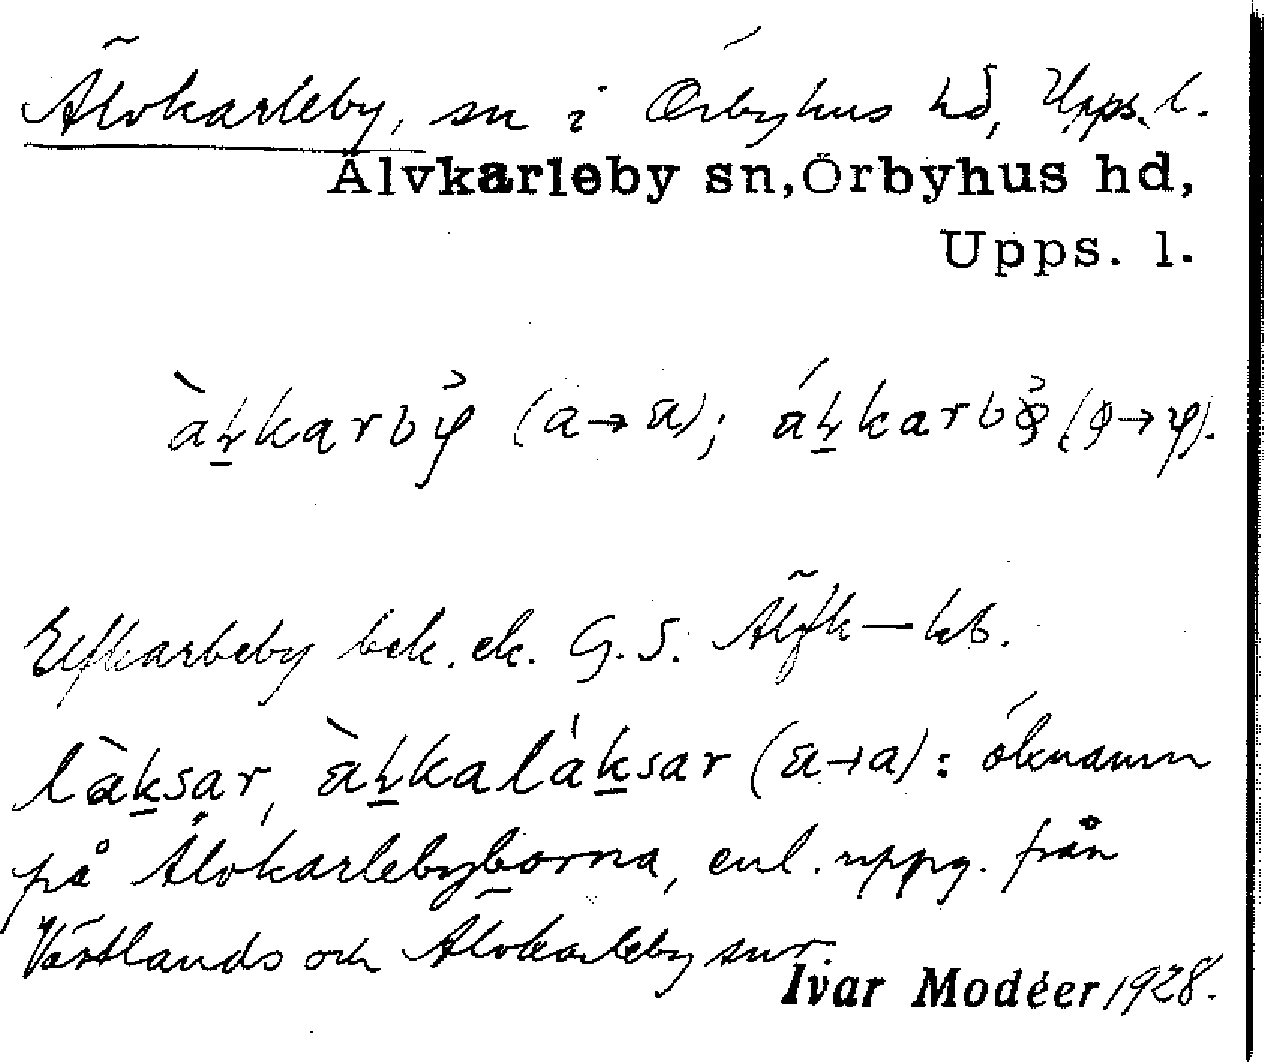 Älvkarleby, sn i Örbyhus hd, Upps. l.
Älvkarleby sn, Örbyhus hd,
Upps. l.
(a→
Elfkarbeby bek. ek. G. S. Älfk — kb.
làksar, (a→a): öknamn
på Älvkarlebyborna, enl. uppg. från
Västlands och Älvkarleby snr.
Ivar Modéer 1928.